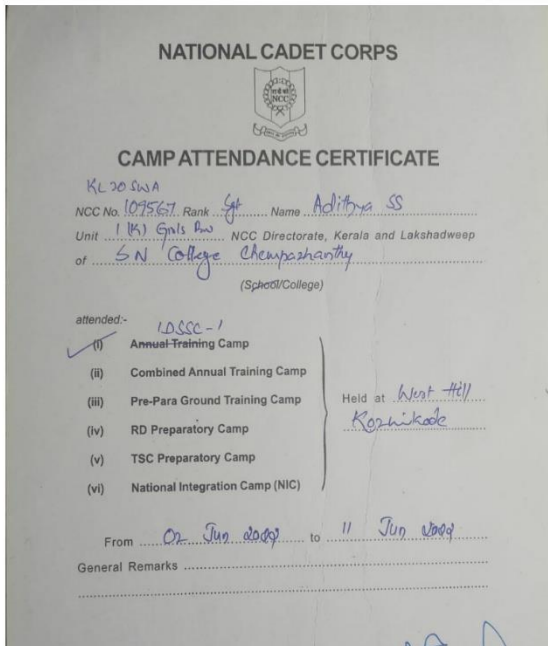 NATIONAL CADET CORPS
NCC
CAMP ATTENDANCE CERTIFICATE
KL20SWA
NCC No. 107567 Rank Sgt Name Adithya SS
Unit 1 (K) Girls Bn NCC Directorate, Kerala and Lakshadweep
of SN College Chempazhanthy
(School/College)
attended:-
IDSSC-1
(i) Annual Training Camp
(ii) Combined Annual Training Camp
(iii) Pre-Para Ground Training Camp
Held at West Hill
(iv) RD Preparatory Camp
Kozhikode
(v) TSC Preparatory Camp
(vi) National Integration Camp (NIC)
From 02 Jun 2022 to 11 Jun 2022
General Remarks